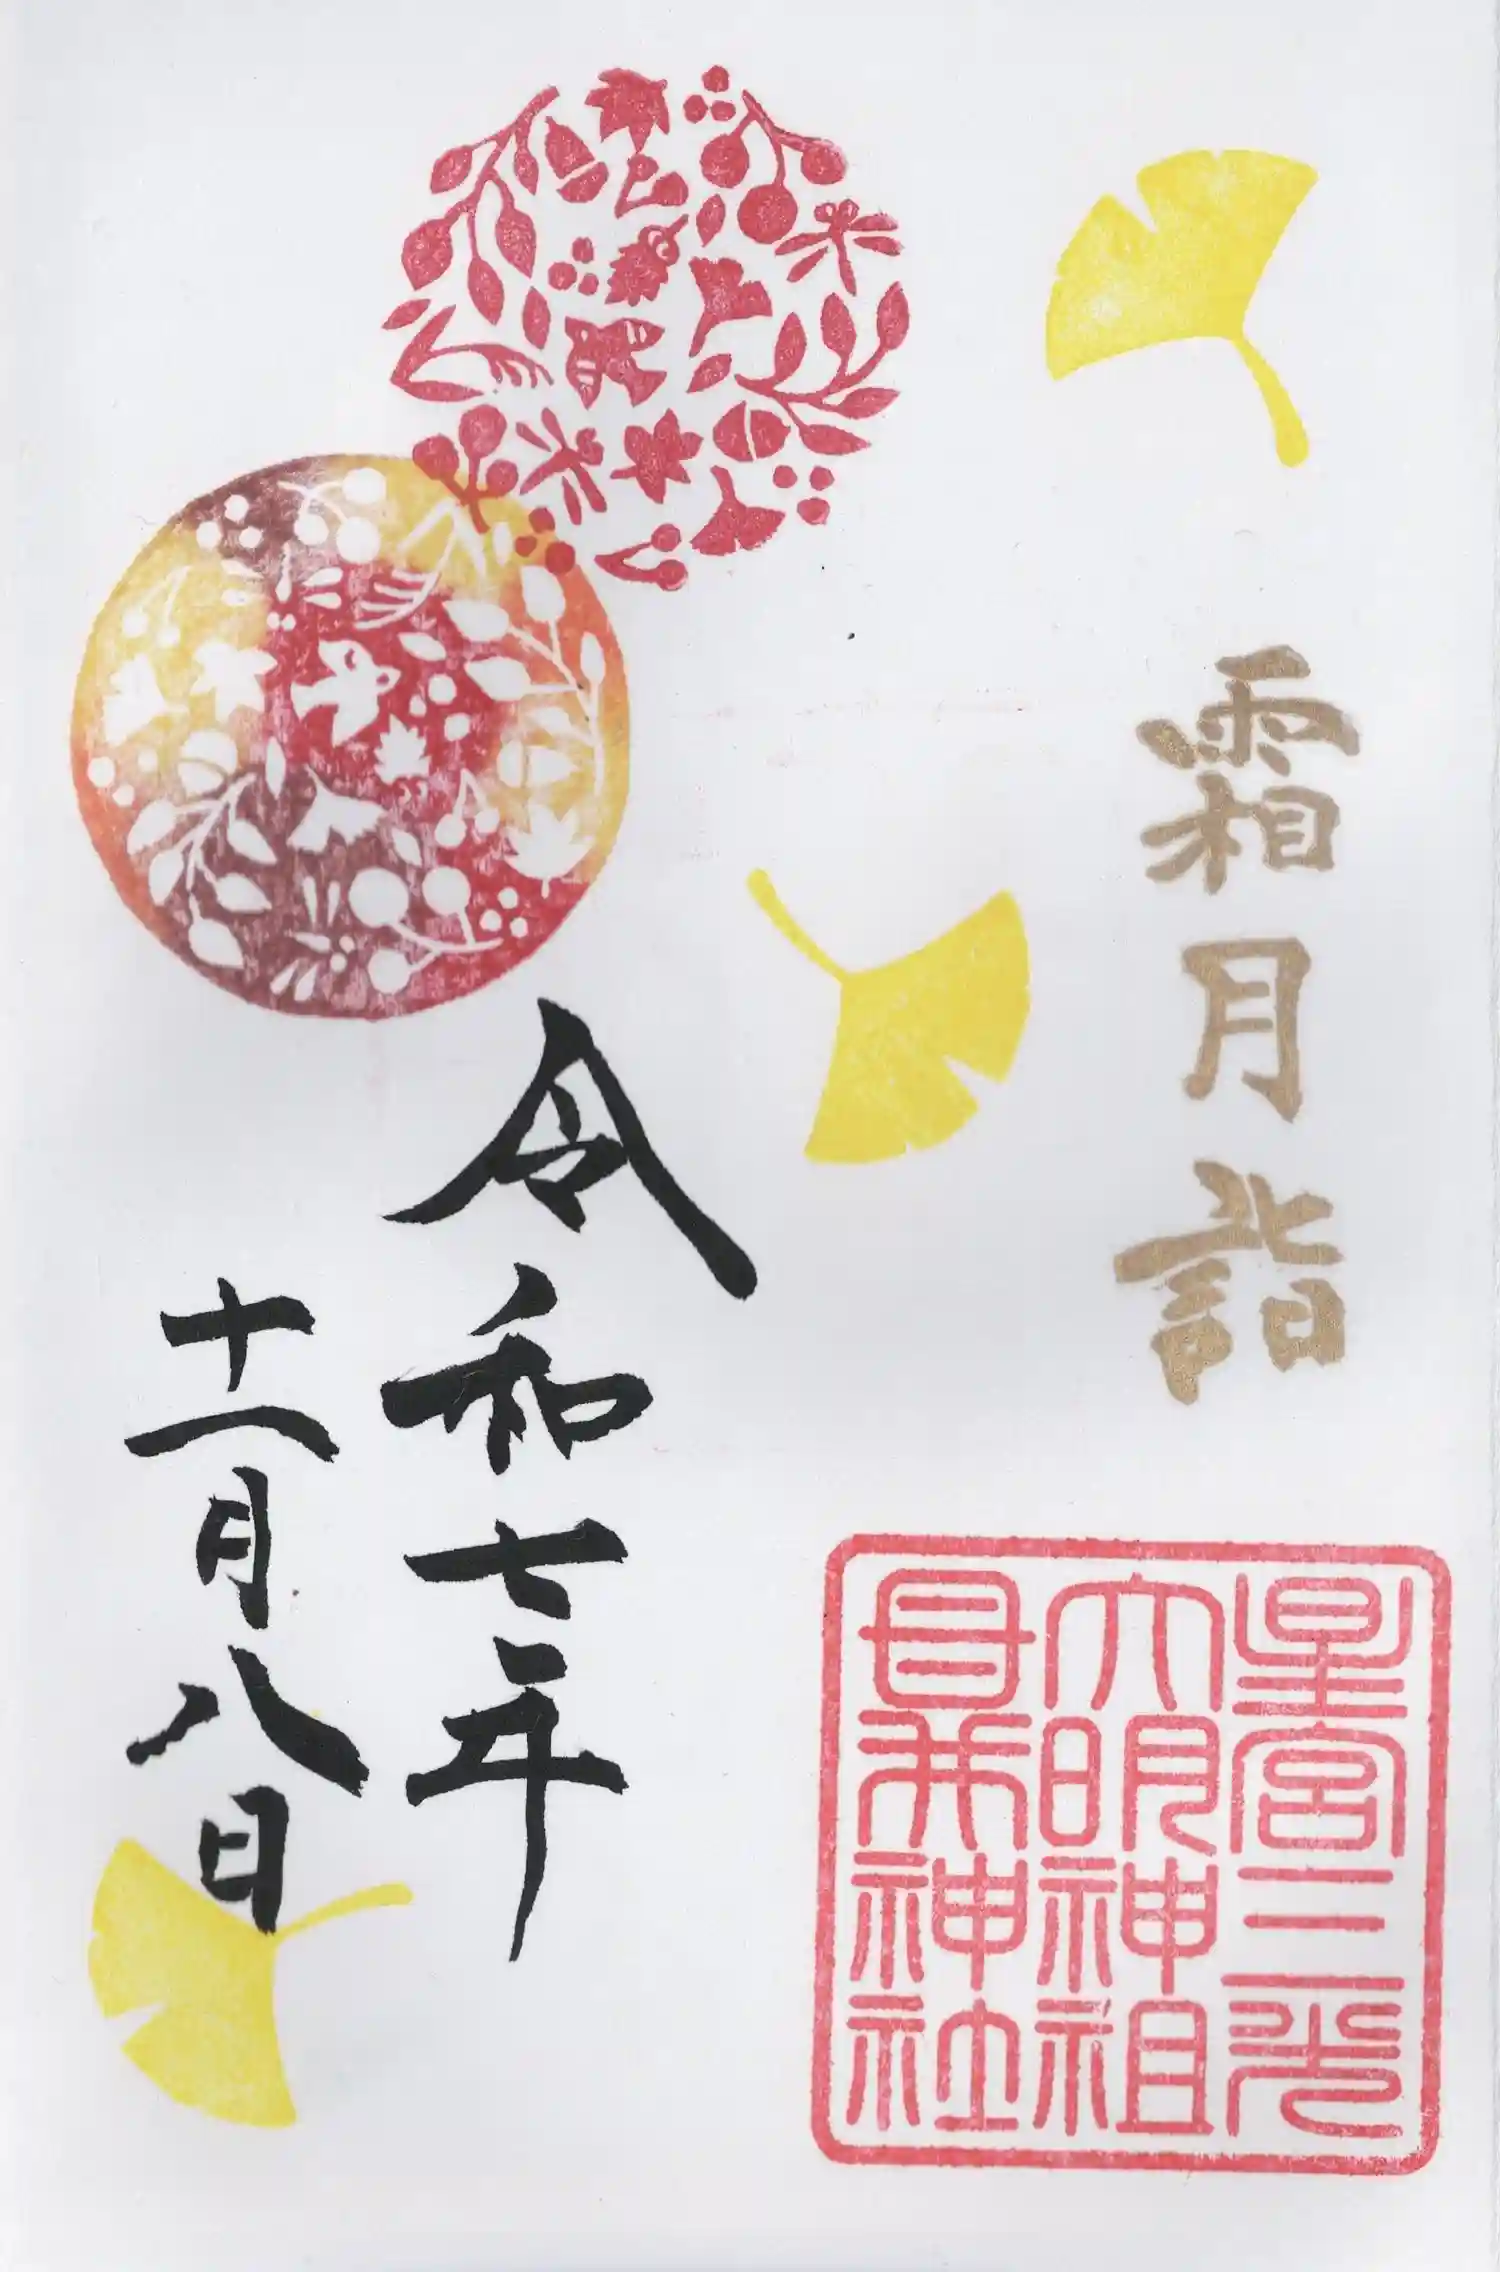 霜月詣
星宮三光
大明神祖
母井神社
令和七年
十一月八日